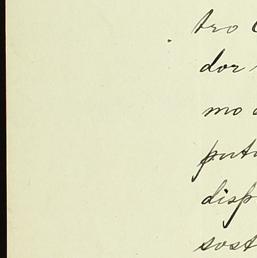 tro
dor
mo
putu
disp
sost